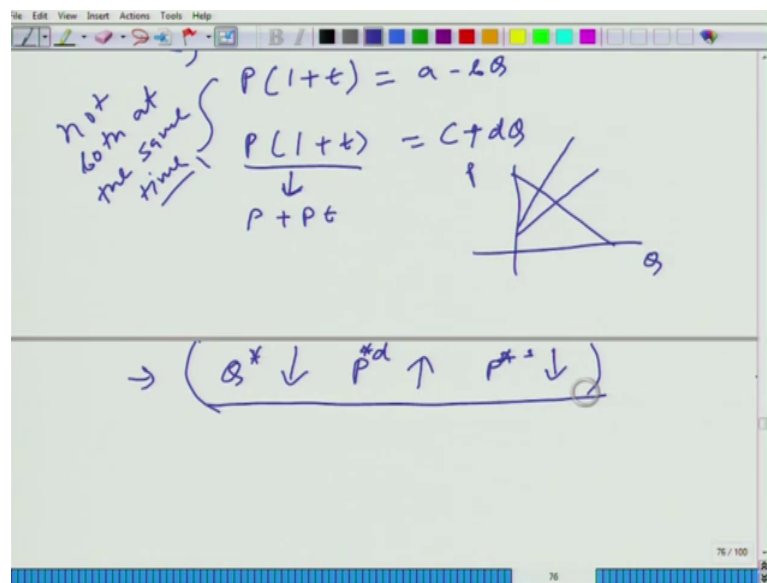 File Edit View Insert Actions Tools Help
B I
not both at the same time!
P(1+t) = a - bQ
P(1+t) = c + dQ
↓
P + Pt
P
Q
→ ( Q* ↓ P*d ↑ P*s ↓ )
76 / 100
76